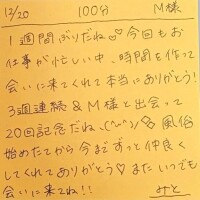 12/20 100分 M様
1週間ぶりだね♡今回もお
仕事が忙しい中、時間を作って
会いに来てくれて本当にありがとう!
3週連続&M様と出会って
20回記念だね、(^-^)/ 風俗
始めたてから今までずっと仲良く
してくれてありがとう♡またいつでも
会いに来てね!!
みと